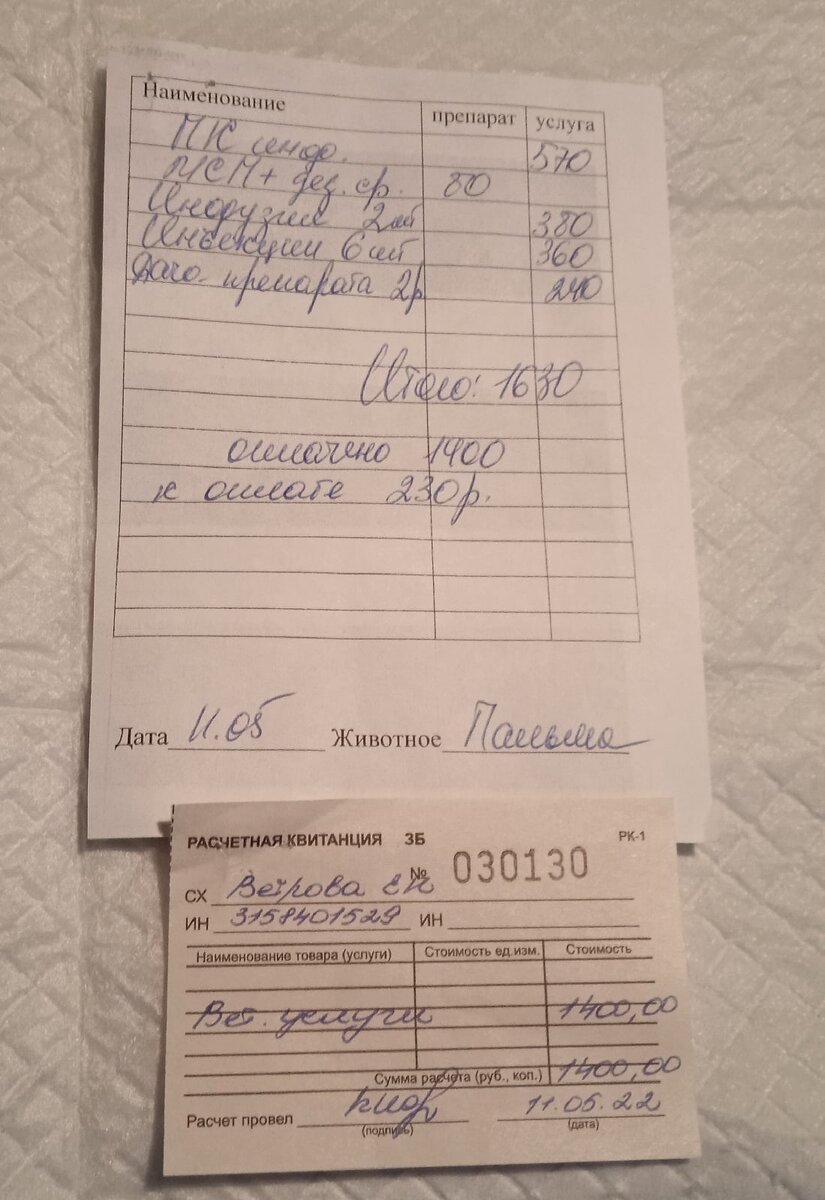 Наименование препарат услуга
ПК инф. 570
МСП + дез. ср. 80
Инфузия 2 шт 380
Инъекции 6 шт 360
Дача препарата 2р 240
Итого: 1630
оплачено 1400
к оплате 230р.
Дата 11.05 Животное Пальма
РАСЧЕТНАЯ КВИТАНЦИЯ ЗБ РК-1
№ 030130
СХ Ветрова ЕН
ИН 3158401529 ИН
Наименование товара (услуги) Стоимость ед.изм. Стоимость
Вет. услуги 1400,00
Сумма расчета (руб., коп.) 1400,00
Расчет провел 11.05.22
(подпись) (дата)